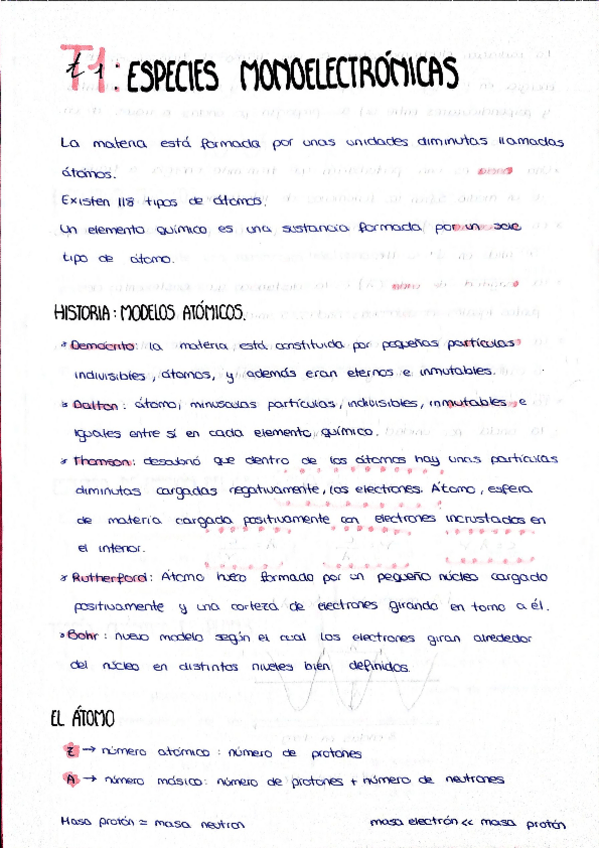 T1: ESPECIES MONOELECTRÓNICAS
La materia está formada por unas unidades diminutas llamadas
átomos.
Existen 118 tipos de átomos.
Un elemento químico es una sustancia formada por un solo
tipo de átomo.
HISTORIA: MODELOS ATÓMICOS.
* Demócrito: la materia está constituida por pequeñas partículas
indivisibles, átomos, y además eran eternos e inmutables.
* Dalton: átomo, minúsculas partículas, indivisibles, inmutables e
iguales entre sí en cada elemento químico.
* Thomson: descubrió que dentro de los átomos hay unas partículas
diminutas cargadas negativamente, los electrones. Átomo, esfera
de materia cargada positivamente con electrones incrustados en
el interior.
* Rutherford: Átomo hueco formado por un pequeño núcleo cargado
positivamente y una corteza de electrones girando en torno a él.
* Bohr: nuevo modelo según el cual los electrones giran alrededor
del núcleo en distintos niveles bien definidos.
EL ÁTOMO
Z → número atómico: número de protones
A → número másico: número de protones + número de neutrones
Masa protón = masa neutron masa electrón << masa protón